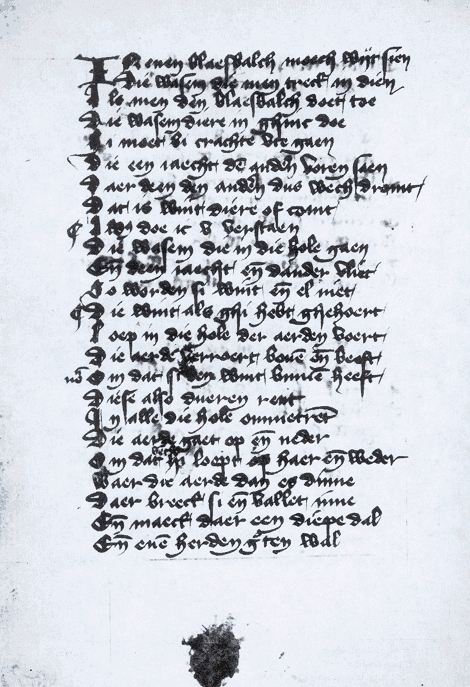 In enen blaesbalch moech wijt sien
Die wasem die men treckt in dien
Als men den blaesbalch doet toe
Die wasem diere in ghinc doe
moet bi crachte vte gaen
Die een iaecht dē andē voren saen
Daer deen den andē dus wech dromt
Dat is wint diere of comt
Nv doe ic v verstaen
Die wasem die in die hole gaen
Eñ deen iaecht eñ dander vliet
So worden si wint eñ el niet
Die wint als ghi hebt ghehoert
Loep in die hole der aerden voert
Die aerde verroert bouē eñ beeft
Om dat si den wint binnē heeft
Diese also dueren rent
In alle die hole ommetrent
Die aerde gaet op eñ neder
Om dat hi loept op haer eñ weder
Waer die aerde dan es dinne
Daer breect si eñ vallet inne
Eñ maect daer een diepe dal
Eñ enē herden gten wal